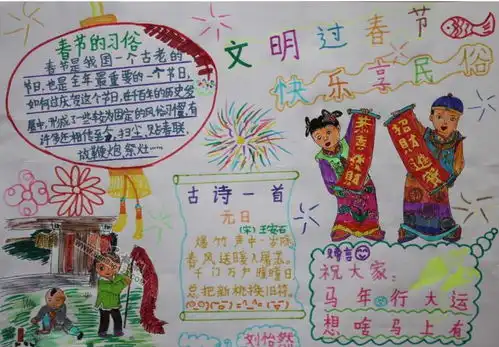 文明过春节
快乐享民俗
春节的习俗
春节是我国一个古老的
节日,也是全年最重要的一个节日,
如何过庆贺这个节日,在千百年的历史发
展中,形成了一些较为固定的风俗习惯,有
许多还相传至今,扫尘,贴春联,
放鞭炮,祭灶……
恭喜發財
招財進寶
古诗一首
元日
(宋)王安石
爆竹声中一岁除,
春风送暖入屠苏。
千门万户曈曈日
总把新桃换旧符。
赠言
祝大家:
马年行大运
想啥马上有
刘怡然